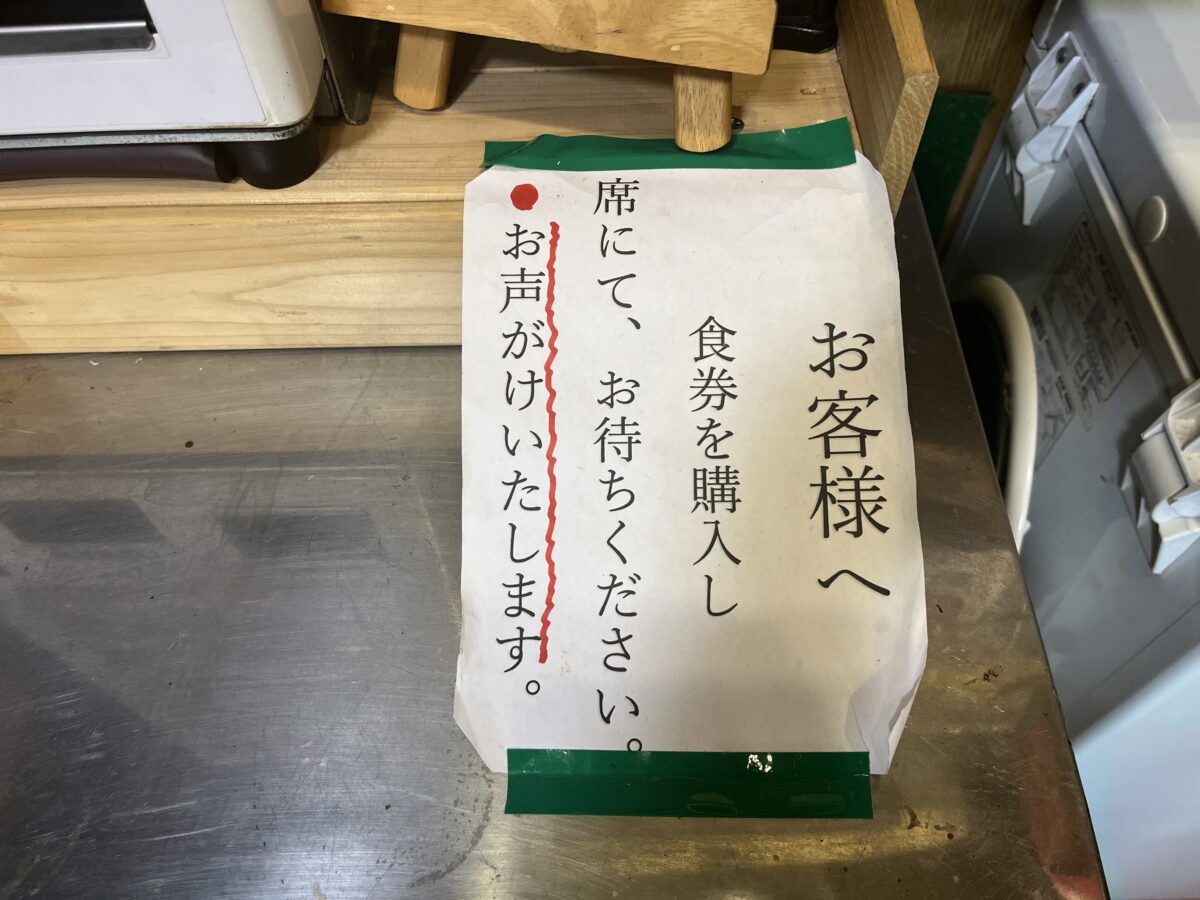 お客様へ
食券を購入し
席にて、お待ちください。
●お声がけいたします。